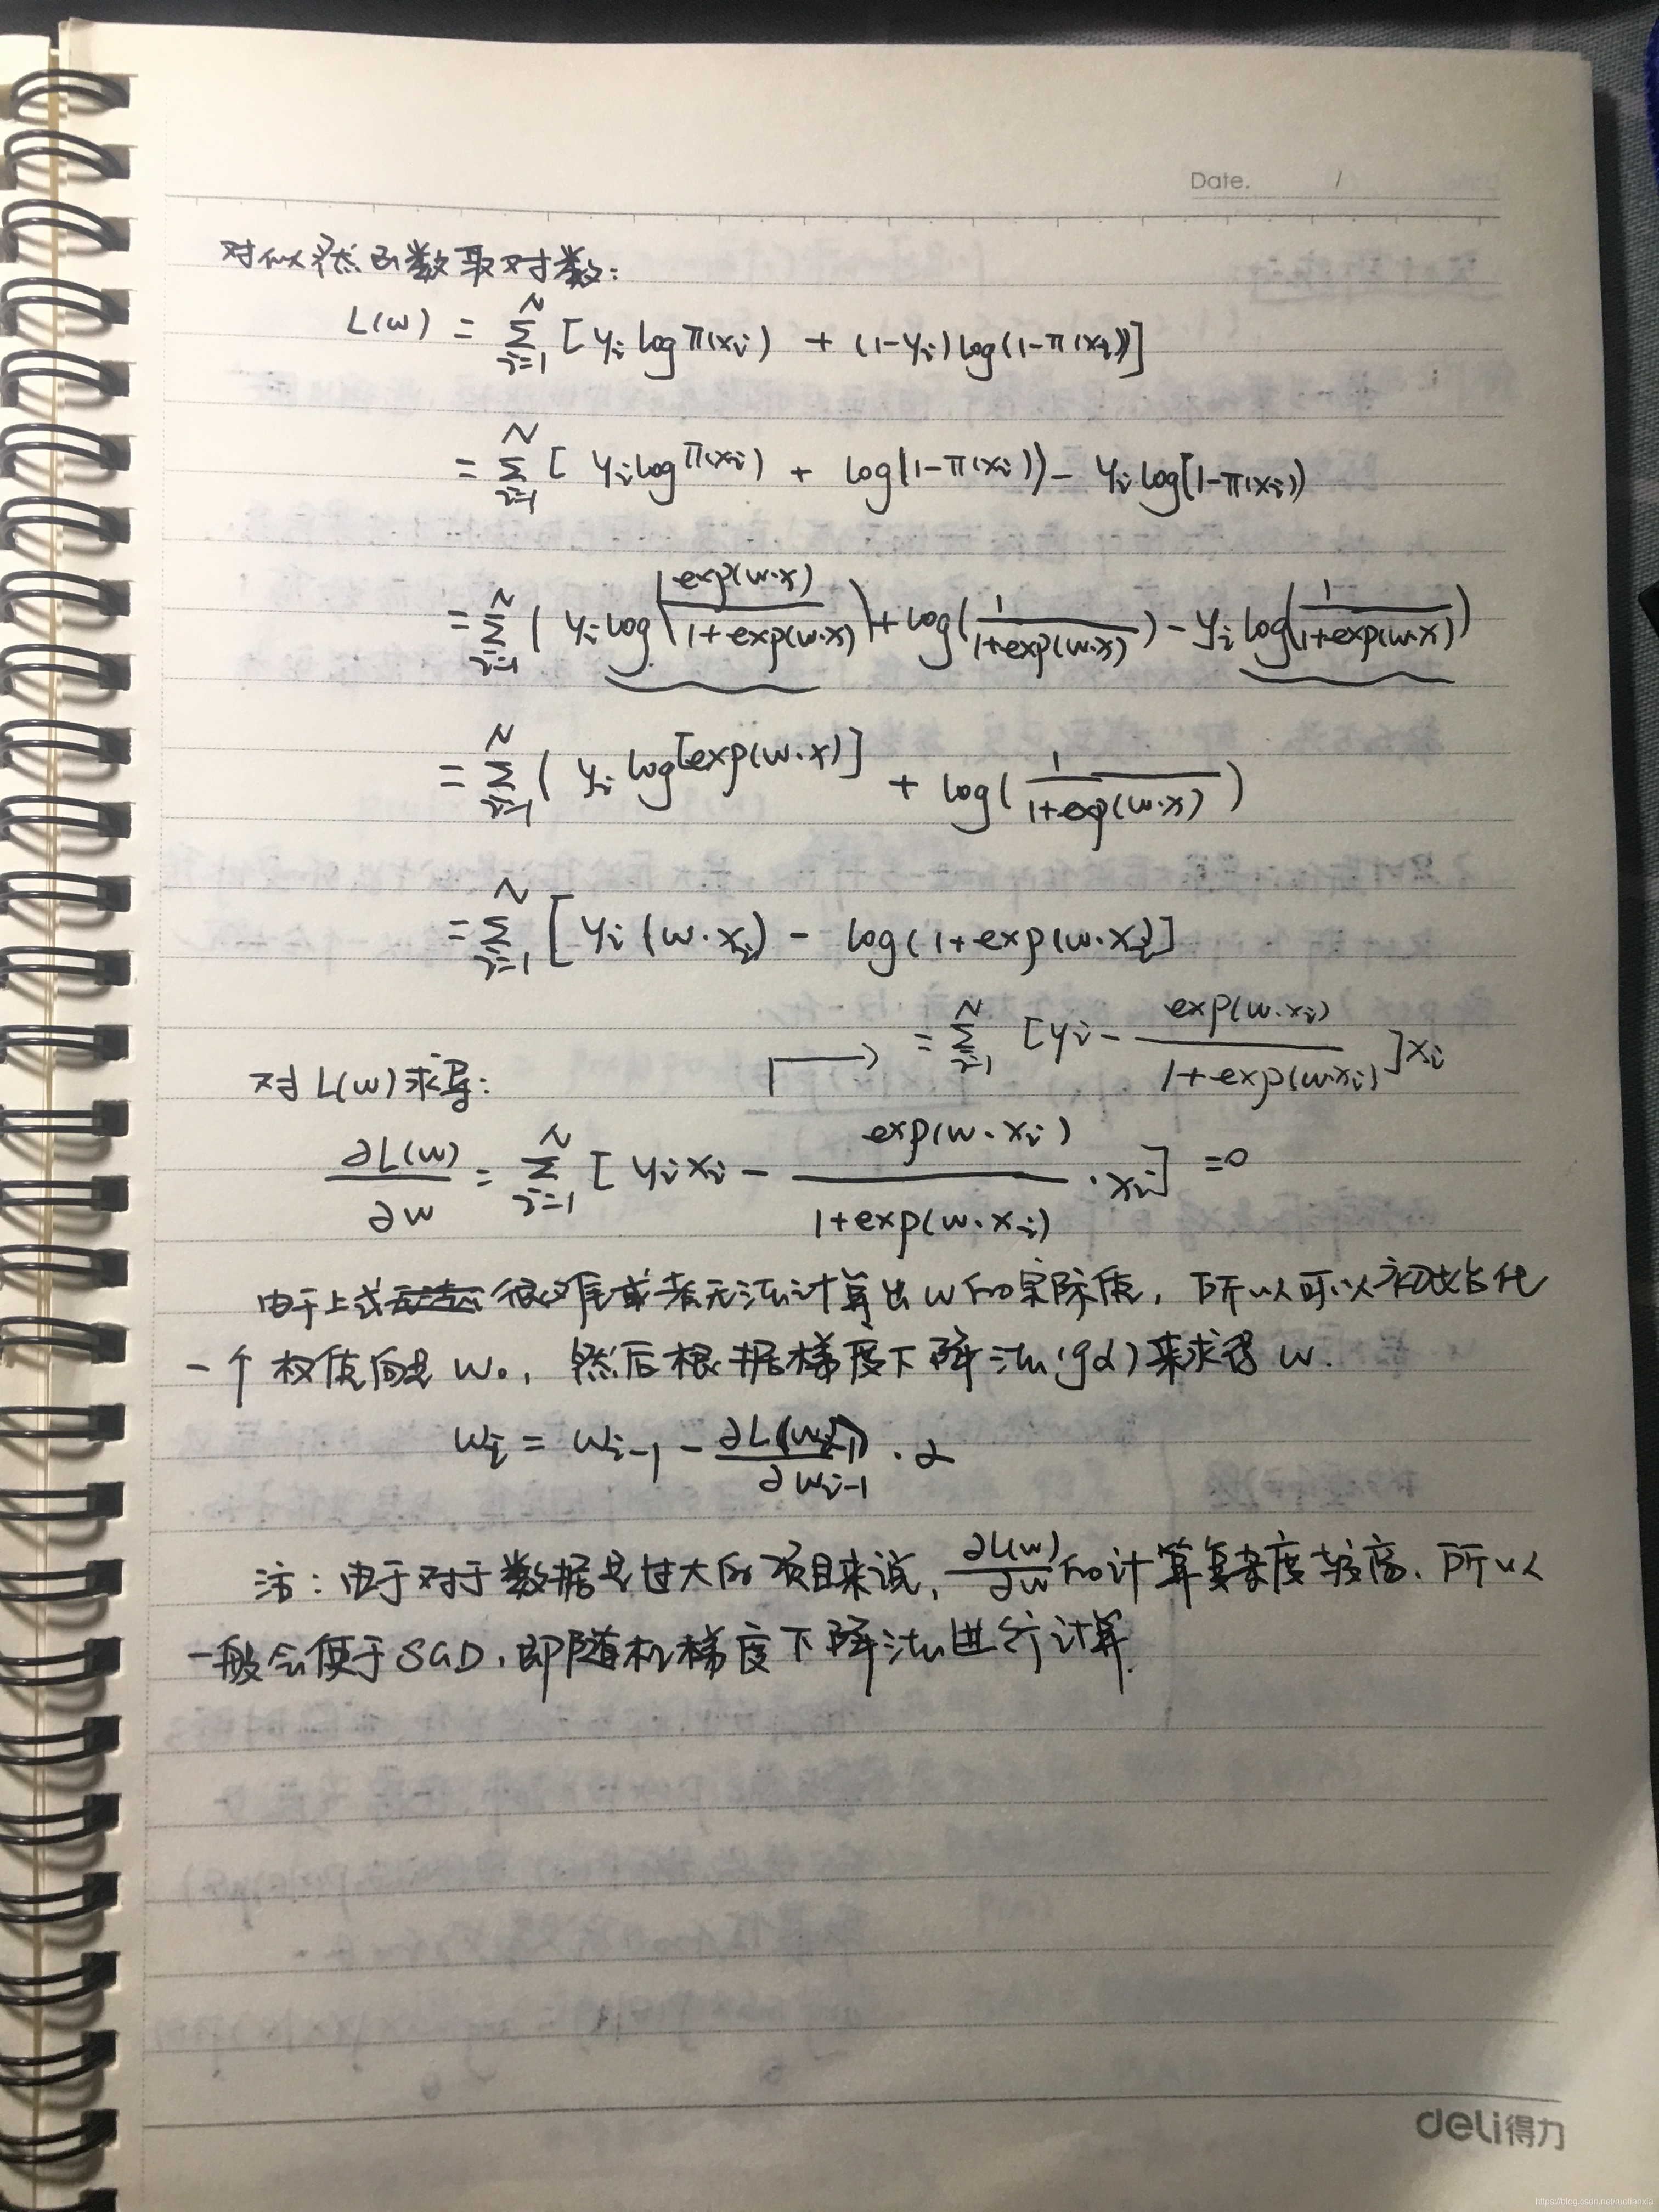 Date. /
对似然函数取对数:
L(w) = \sum_{i=1}^{N} [ y_i log π(x_i) + (1-y_i) log(1-π(x_i)) ]
= \sum_{i=1}^{N} [ y_i log π(x_i) + log(1-π(x_i)) - y_i log[1-π(x_i))
= \sum_{i=1}^{N} ( y_i log( \frac{exp(w·x)}{1+exp(w·x)} ) + log( \frac{1}{1+exp(w·x)} ) - y_i log( \frac{1}{1+exp(w·x)} )
= \sum_{i=1}^{N} ( y_i log[exp(w·x)] + log( \frac{1}{1+exp(w·x)} )
= \sum_{i=1}^{N} [ y_i (w·x_i) - log(1+exp(w·x_i) ]
= \sum_{i=1}^{N} [ y_i - \frac{exp(w·x_i)}{1+exp(w·x_i)} ] x_i
对L(w)求导:
\frac{∂L(w)}{∂w} = \sum_{i=1}^{N} [ y_i x_i - \frac{exp(w·x_i)}{1+exp(w·x_i)} · x_i ] = 0
由于上式很难或者无法计算出w的实际值, 所以可以初始化
一个权值向量 w₀, 然后根据梯度下降法(gd)来求得 w.
w_i = w_{i-1} - \frac{∂L(w_{i-1})}{∂w_{i-1}} · α
注: 由于对于数据量过大的项目来说, \frac{∂L(w)}{∂w} 的计算复杂度较高, 所以
一般会便于SGD, 即随机梯度下降法进行计算.
deli得力
https://blog.csdn.net/ruotianxia